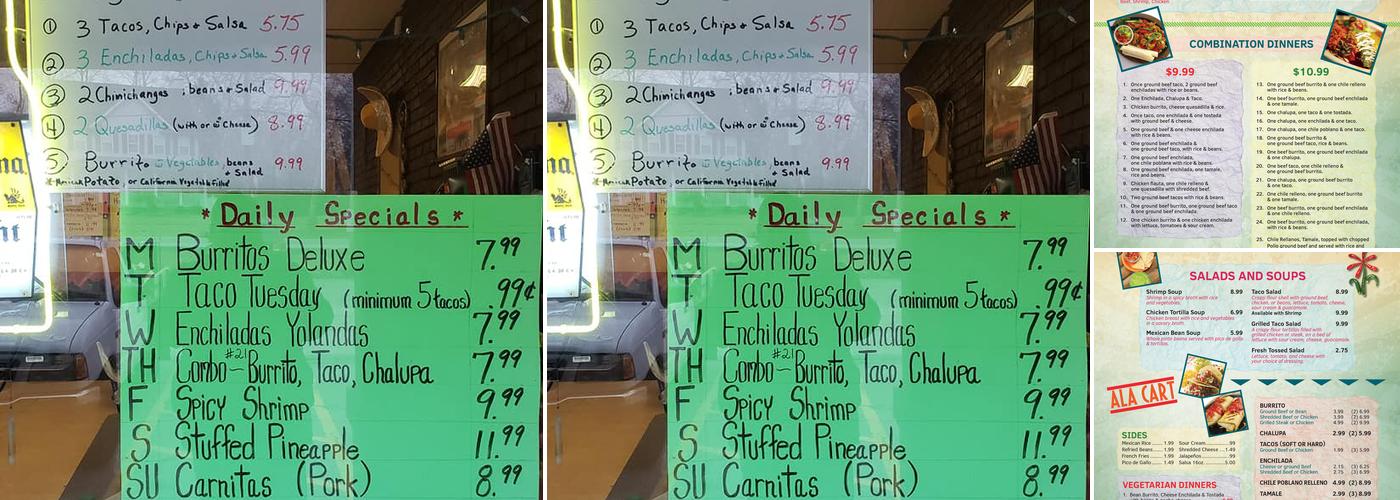 ① 3 Tacos, Chips + Salsa 5.75
② 3 Enchiladas, Chips + Salsa 5.99
③ 2 Chimichangas ; beans + Salad 9.99
④ 2 Quesadillas (with or w̄ Cheese) 8.99
⑤ Burrito w̄ Vegetables, beans + Salad 9.99
Potato, or California Vegetable Filled
* Daily Specials *
M Burritos Deluxe 7.99
T Taco Tuesday (minimum 5 tacos) .99¢
W Enchiladas Yolandas 7.99
TH Combo #21 ~ Burrito, Taco, Chalupa 7.99
F Spicy Shrimp 9.99
S Stuffed Pineapple 11.99
SU Carnitas (Pork) 8.99
① 3 Tacos, Chips + Salsa 5.75
② 3 Enchiladas, Chips + Salsa 5.99
③ 2 Chimichangas ; beans + Salad 9.99
④ 2 Quesadillas (with or w̄ Cheese) 8.99
⑤ Burrito w̄ Vegetables, beans + Salad 9.99
Potato, or California Vegetable Filled
* Daily Specials *
M Burritos Deluxe 7.99
T Taco Tuesday (minimum 5 tacos) .99¢
W Enchiladas Yolandas 7.99
TH Combo #21 ~ Burrito, Taco, Chalupa 7.99
F Spicy Shrimp 9.99
S Stuffed Pineapple 11.99
SU Carnitas (Pork) 8.99
Beef, Shrimp, Chicken
COMBINATION DINNERS
$9.99
1. Once ground beef taco, 2 ground beef
enchiladas with rice or beans.
2. One Enchilada, Chalupa & Taco.
3. Chicken burrito, cheese quesadilla & rice.
4. Once taco, one enchilada & one tostada
with ground beef & cheese.
5. One ground beef & one cheese enchilada
with rice & beans.
6. One ground beef enchilada &
one ground beef taco, with rice & beans.
7. One ground beef enchilada,
one chile poblano with rice & beans.
8. One ground beef enchilada, one tamale,
rice and beans.
9. Chicken flauta, one chile relleno &
one quesadilla with shredded beef.
10. Two ground beef tacos with rice & beans.
11. One ground beef burrito, one ground beef taco
& one ground beef enchilada.
12. One chicken burrito & one chicken enchilada
with lettuce, tomatoes & sour cream.
$10.99
13. One ground beef burrito & one chile relleno
with rice & beans.
14. One beef burrito, one ground beef enchilada
& one tamale.
15. One chalupa, one taco & one tostada.
16. One chalupa, one enchilada & one taco.
17. One chalupa, one chile poblano & one taco.
18. One ground beef burrito &
one ground beef taco with rice & beans.
19. One beef burrito, one ground beef enchilada
& one chalupa.
20. One beef taco, one chile relleno &
one ground beef enchilada.
21. One chalupa, one ground beef burrito
& one taco.
22. One chile relleno, one ground beef burrito
& one tamale.
23. One ground beef burrito, one enchilada
& one chile relleno.
24. One ground beef burrito, one beef enchilada,
with rice & beans.
25. Chile Rellanos, Tamale, topped with chopped
Pollo ground beef and served with rice and
SALADS AND SOUPS
Shrimp Soup 8.99
Shrimp in a spicy broth with rice
and vegetables.
Chicken Tortilla Soup 6.99
Chicken breast with rice and vegetables
in a savory broth.
Mexican Bean Soup 5.99
Whole pinto beans served with pico de gallo
& tortillas.
Taco Salad 8.99
Crispy flour shell with ground beef,
chicken, or beans, lettuce, tomato, cheese,
sour cream & guacamole.
Available with Shrimp 9.99
Grilled Taco Salad 9.99
A crispy flour tortillas filled with
grilled chicken or steak, on a bed of
lettuce with sour cream, cheese, guacamole.
Fresh Tossed Salad 2.75
Lettuce, tomato, and cheese with
your choice of dressing.
ALA CART
SIDES
Mexican Rice 1.99 Sour Cream .99
Refried Beans 1.99 Shredded Cheese 1.49
French Fries 1.99 Jalapeños .99
Pico de Gallo 1.49 Salsa 16oz 5.00
VEGETARIAN DINNERS
1. Bean Burrito, Cheese Enchilada & Tostada
BURRITO
Ground Beef or Bean 3.99 (2) 6.99
Shredded Beef or Chicken 3.99 (2) 6.99
Grilled Steak or Chicken 4.99 (2) 9.99
CHALUPA 2.99 (2) 5.99
TACOS (SOFT OR HARD)
Ground Beef or Chicken 1.99 (3) 5.99
ENCHILADA
Cheese or ground Beef 2.15 (3) 6.25
Shredded Beef or Chicken 2.75 (3) 6.99
CHILE POBLANO RELLENO 4.99 (2) 8.99
TAMALE 2.99 (2) 8.99